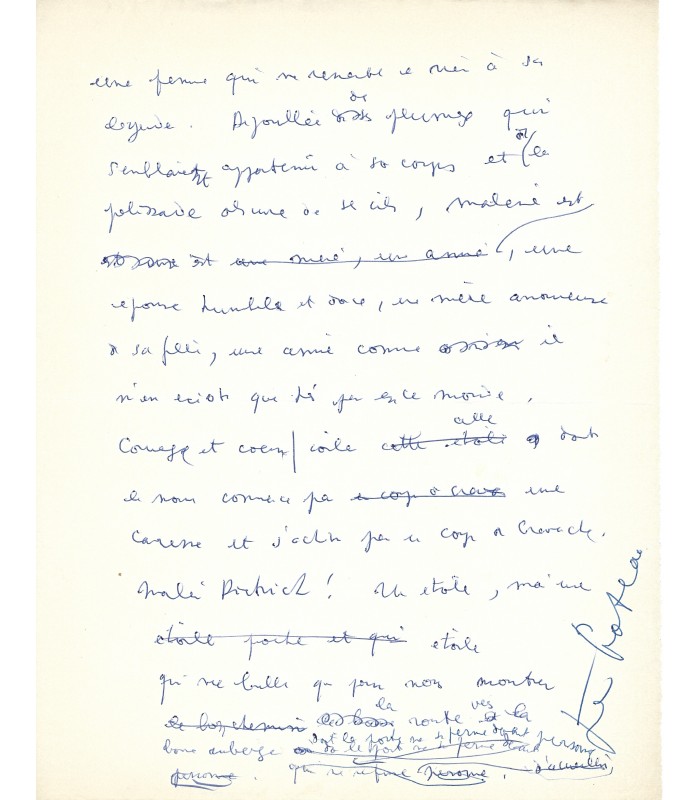 une femme qui ne ressemble en rien à sa
légende. Dépouillée de plumes qui
semblaient appartenir à son corps et à la
palissade obscure de ses cils, Marlène est
une mère, une amie, une
épouse humble et douce, une mère amoureuse
de sa fille, une amie comme il
n'en existe que très peu en ce monde.
Courage et cœur, voilà celle dont
le nom commence par une
caresse et s'achève par un coup de cravache.
Marlène Dietrich! Une étoile, mais une
étoile qui étoile
qui ne brille que pour nous montrer
la route vers la
bonne auberge dont la porte ne se ferme devant personne
personne. qui se refuse personne.
Jean Cocteau